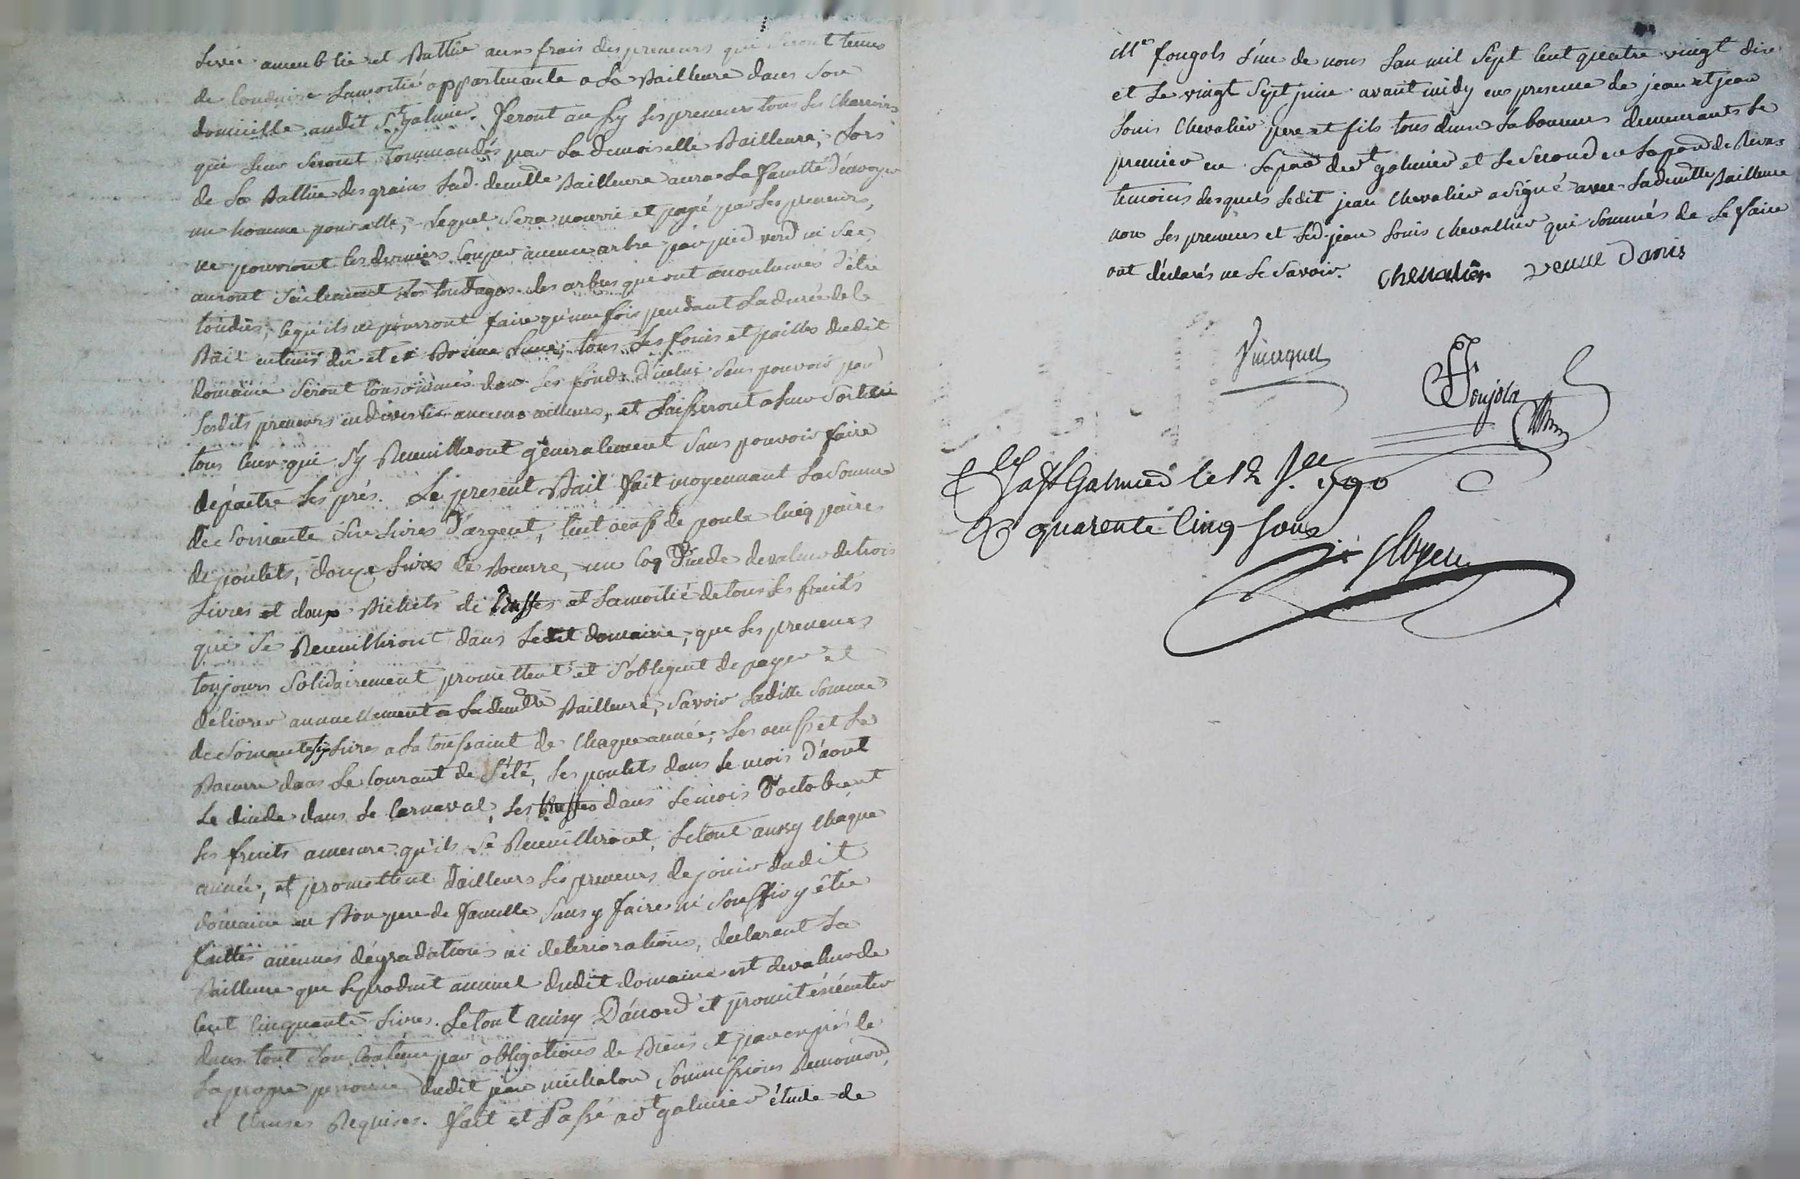 livré ameublie et Battie aux frais des preneurs qui seront tenus
de Conduire Lamoitié appartenante a La Bailleure dans son
domicille audit St galmier. Feront aussy les preneurs tous les Charrois
qui leur seront Commandés par La demoiselle Bailleure; Lors
de La Battüe des grains Lad. demlle Bailleure aura La faculté d'envoyer
un homme pour elle, Lequel sera nourri et payé par les preneurs,
ne pourront les derniers Couper aucuns arbre par pied verd ni sec,
auront seulement Les tontages des arbres qui ont accoutumés d'être
tondus, ce qu'ils ne pourront faire qu'une fois pendant La durée de
Bail en tems dû et Bonne Lune; tous les foins et pailles dudit
Domaine seront Consommés dans les fonds d'icelui sans pouvoir par
lesdits preneurs en divertir aucuns ailleurs, et Laisseront a leur sortie
tous Ceux qui s'y Recueilleront généralement sans pouvoir faire
depaitre les prés. Le present Bail fait moyennant La somme
de soixante six Livres d'argent, Cent oeufs de poule Cinq paires
de poulets, douze Livres de Beurre, un Coq d'inde de valeur de trois
Livres et deux Bichets de et Lamoitié de tous les fruits
qui se Recueilliront dans Ledit domaine, que les preneurs
toujours solidairement promettent et s'obligent de payer et
delivrer annuellement a Lademlle Bailleure, savoir Laditte somme
de soixante six Livres a La toussaint de Chaque année, les oeufs et Le
Beurre dans Le Courant de l'été, les poulets dans le mois d'aout
Le dinde dans le Carnaval, les dans le mois d'octobre et
les fruits amesure qu'ils se Recueilliront, le tout aussy Chaque
année, et promettent d'ailleurs les preneurs de jouir dudit
domaine en Bon pere de famille sans y faire ni souffrir y être
faittes aucunes dégradations ni deteriorations, declarant La
Bailleure que le produit annuel dudit domaine est de valeur de
Cent Cinquante Livres. Le tout ainsy D'accord et promit éxécuter
dans tout son Contenu par obligations de Biens et par exprès de
La propre personne dudit jean michalon, soumissions Renonciaons,
et Clauses Requises. Fait et Passé a St galmier étude de
Me fougols L'un de nous L'an mil sept Cent quatre vingt dix
et Le vingt sept juin avant midy en presence de jean et jean
Louis Chevalier pere et fils tous deux Laboureurs demeurants Le
premier en Lapaê de St galmier et Le second en Lapaê de Rivas
temoins desquels Ledit jean Chevalier a signé avec Lademlle Bailleure
non les preneurs et Led. jean Louis Chevallier qui sommés de Le faire
ont déclarés ne Le savoir. Chevalier veuve Danis
Fougols
Cé a St Galmier le 12 Jet 1790
R quarente Cinq sous